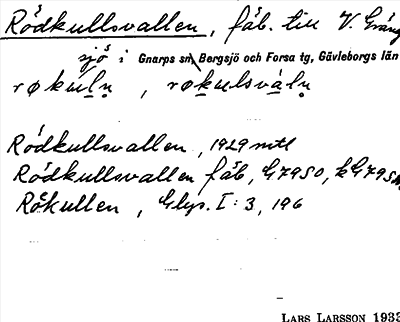 Rödkullsvallen, fäb. till V. Gräng
sjö i Gnarps sn, Bergsjö och Forsa tg, Gävleborgs län
røkuln̥, røkulsvàln̥
Rödkullsvallen, 1929 mtl
Rödkullsvallen fäb, G79SO, kG79SO
Rökullen, Glys. I: 3, 196
LARS LARSSON 1933